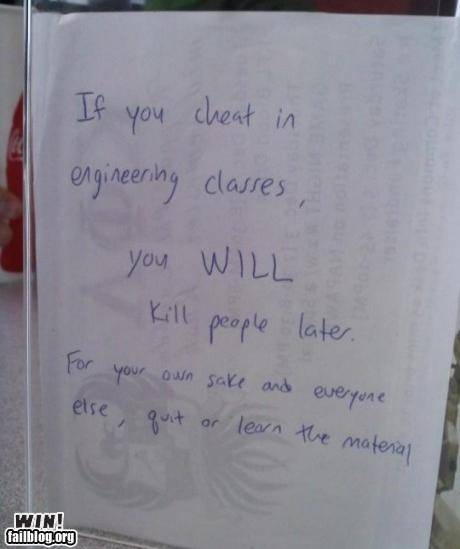 If you cheat in
engineering classes,
you WILL
Kill people later.
For your own sake and everyone
else, quit or learn the material
WIN!
failblog.org